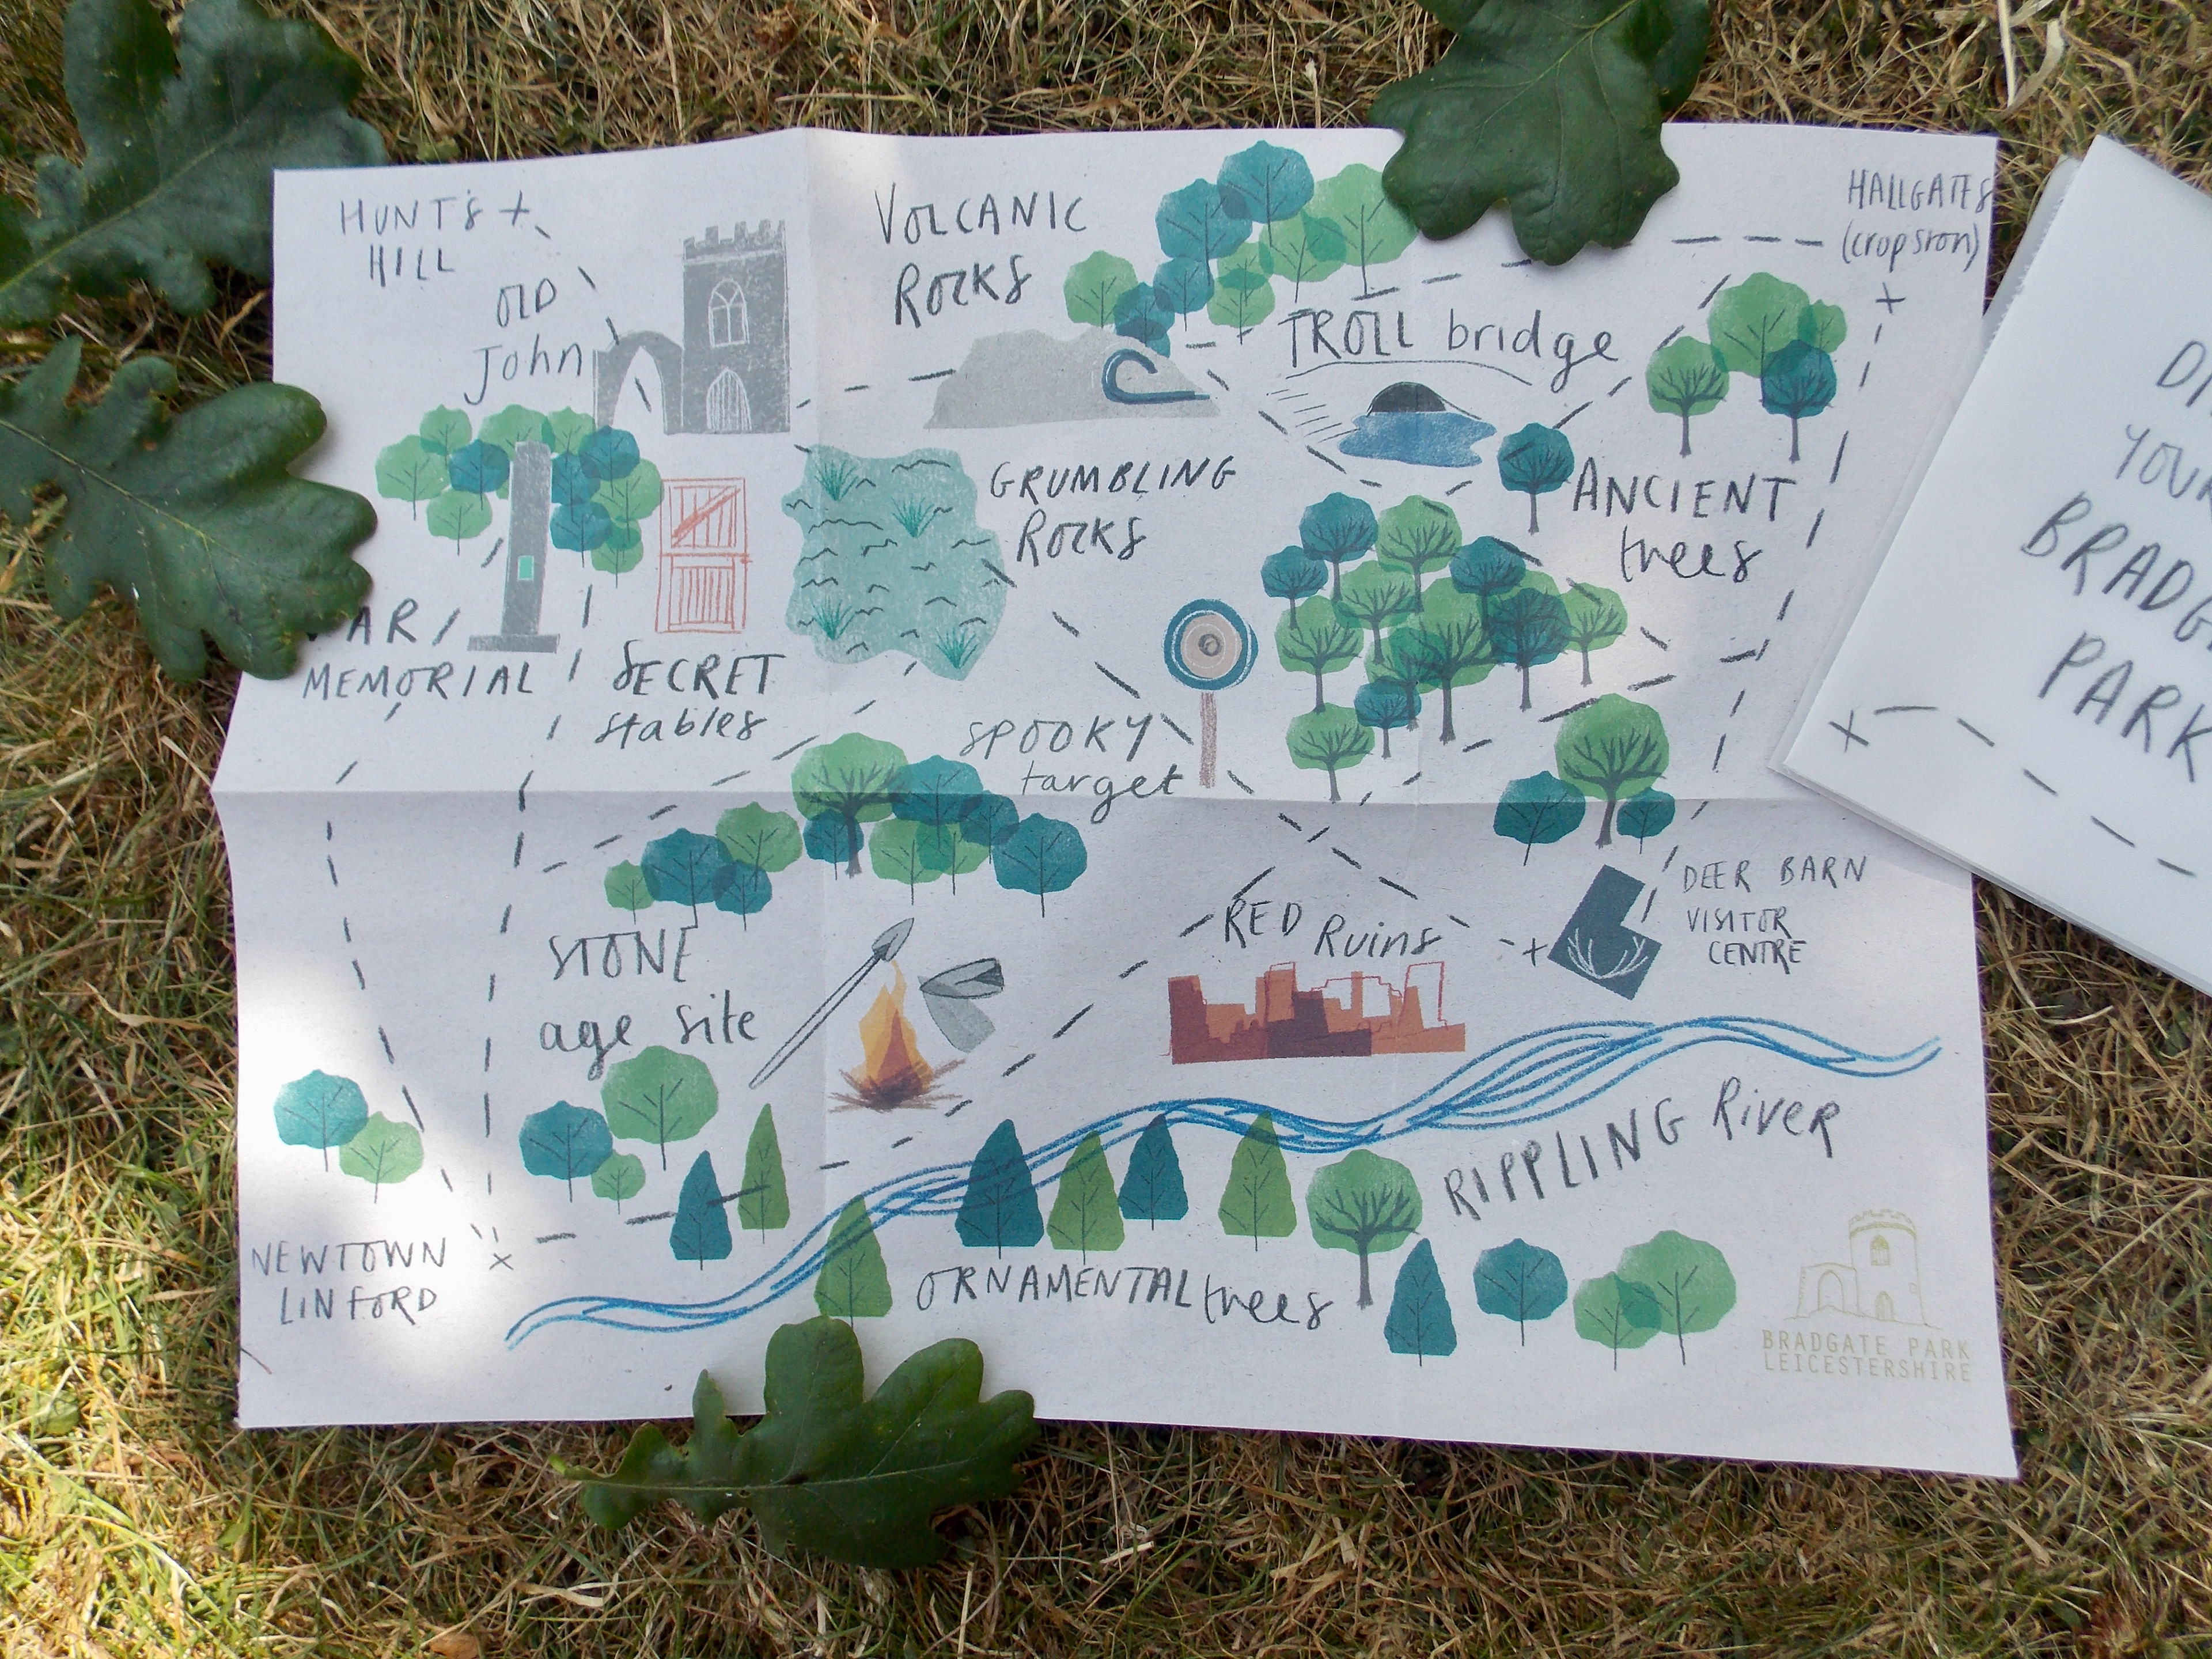 HUNT'S
HILL
OLD
John
VOLCANIC
ROCKS
TROLL bridge
HALLGATES
(cropston)
GRUMBLING
ROCKS
ANCIENT
trees
MEMORIAL
SECRET
stables
SPOOKY
target
STONE
age site
RED Ruins
DEER BARN
VISITOR
CENTRE
RIPPLING River
NEWTOWN
LINFORD
ORNAMENTAL trees
BRADGATE PARK
LEICESTERSHIRE
PARK